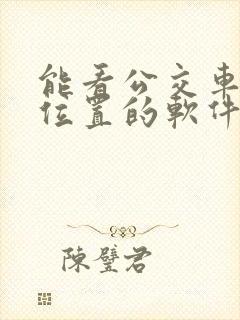 能看公交車
位置的軟件
陳璧君